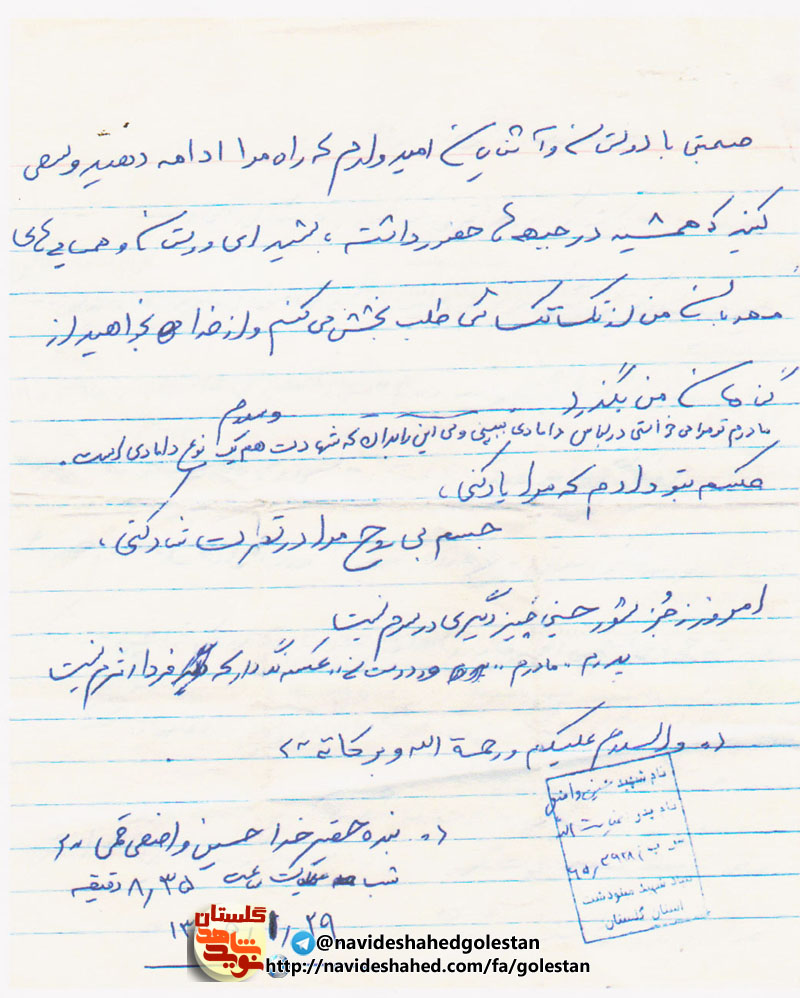 صحبتی با دوستان و آشنایان امیدوارم که راه مرا ادامه دهید و سعی
کنید که همشیه در جبهه ها حضور داشته باشید ای دوستان و همسایه های
مهربان من از تک تک شما طلب بخشش می کنم و از خدا بخواهید از
گناهان من بگذرد
والسلام
مادرم تو مرا می خواستی در لباس دامادی ببینی ولی این را بدان که شهادت هم یک نوع دامادی است.
عکسم بتو دادم که مرا یاد کنی،
جسم بی روح مرا در نظرت شاد کنی،
امروز جز شور حسینی چیز دیگری در سرم نیست
پدرم، مادرم، دوستان، عکسم نگه دار که فردا اثرم نیست
والسلام علیکم و رحمة الله و برکاته
بنده حقیر خدا حسین واضعی قمی
شب ساعت ۸,۳۵ دقیقه
۲۹
نام شهید
نام پدر عنایت الله
بنیاد شهید مینودشت
استان گلستان
گلستان
نوید شاهد
@navideshahedgolestan
http://navideshahed.com/fa/golestan